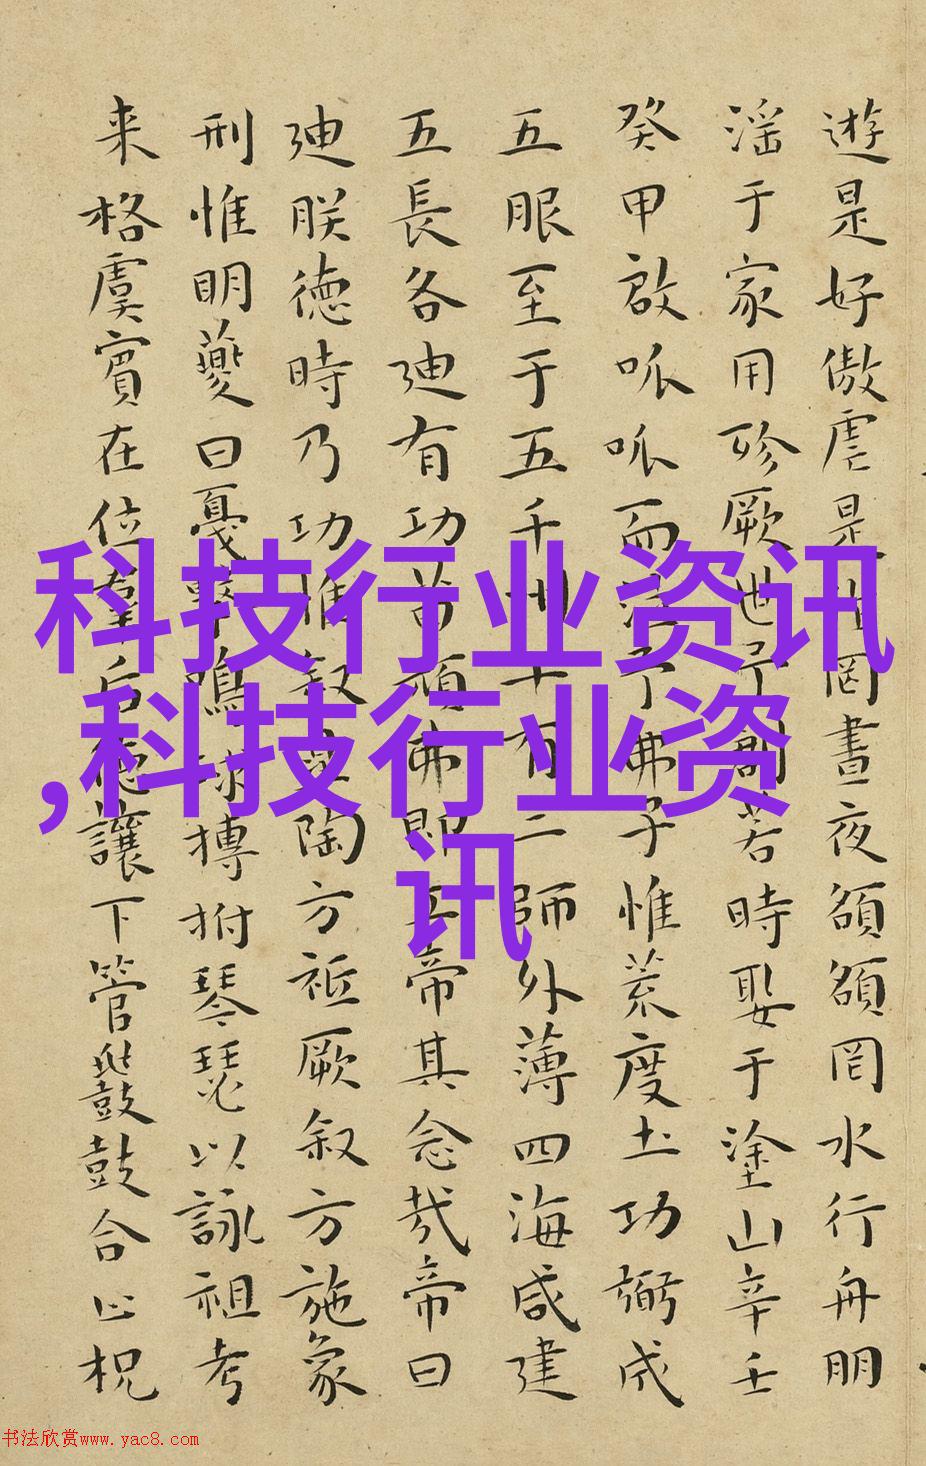 科技行业资讯
,科技行业资
讯
遊是好傲虐是罔晝夜頟頟罔水行舟朋
淫于家用殄厥世予創若時娶于塗山辛壬
癸甲啟呱呱而泣予弗子惟荒度土功弼成
五服至于五千州十有二師外薄四海咸建
五長各迪有功苗頑弗即工帝其念哉帝曰
迪朕德時乃功惟叙陶方祗厥叙方施象
刑惟明夔曰戛擊鳴球搏拊琴瑟以詠祖考
来格虞賓在位羣后德讓下管鼗鼓合止柷
书法欣赏www.yac8.com